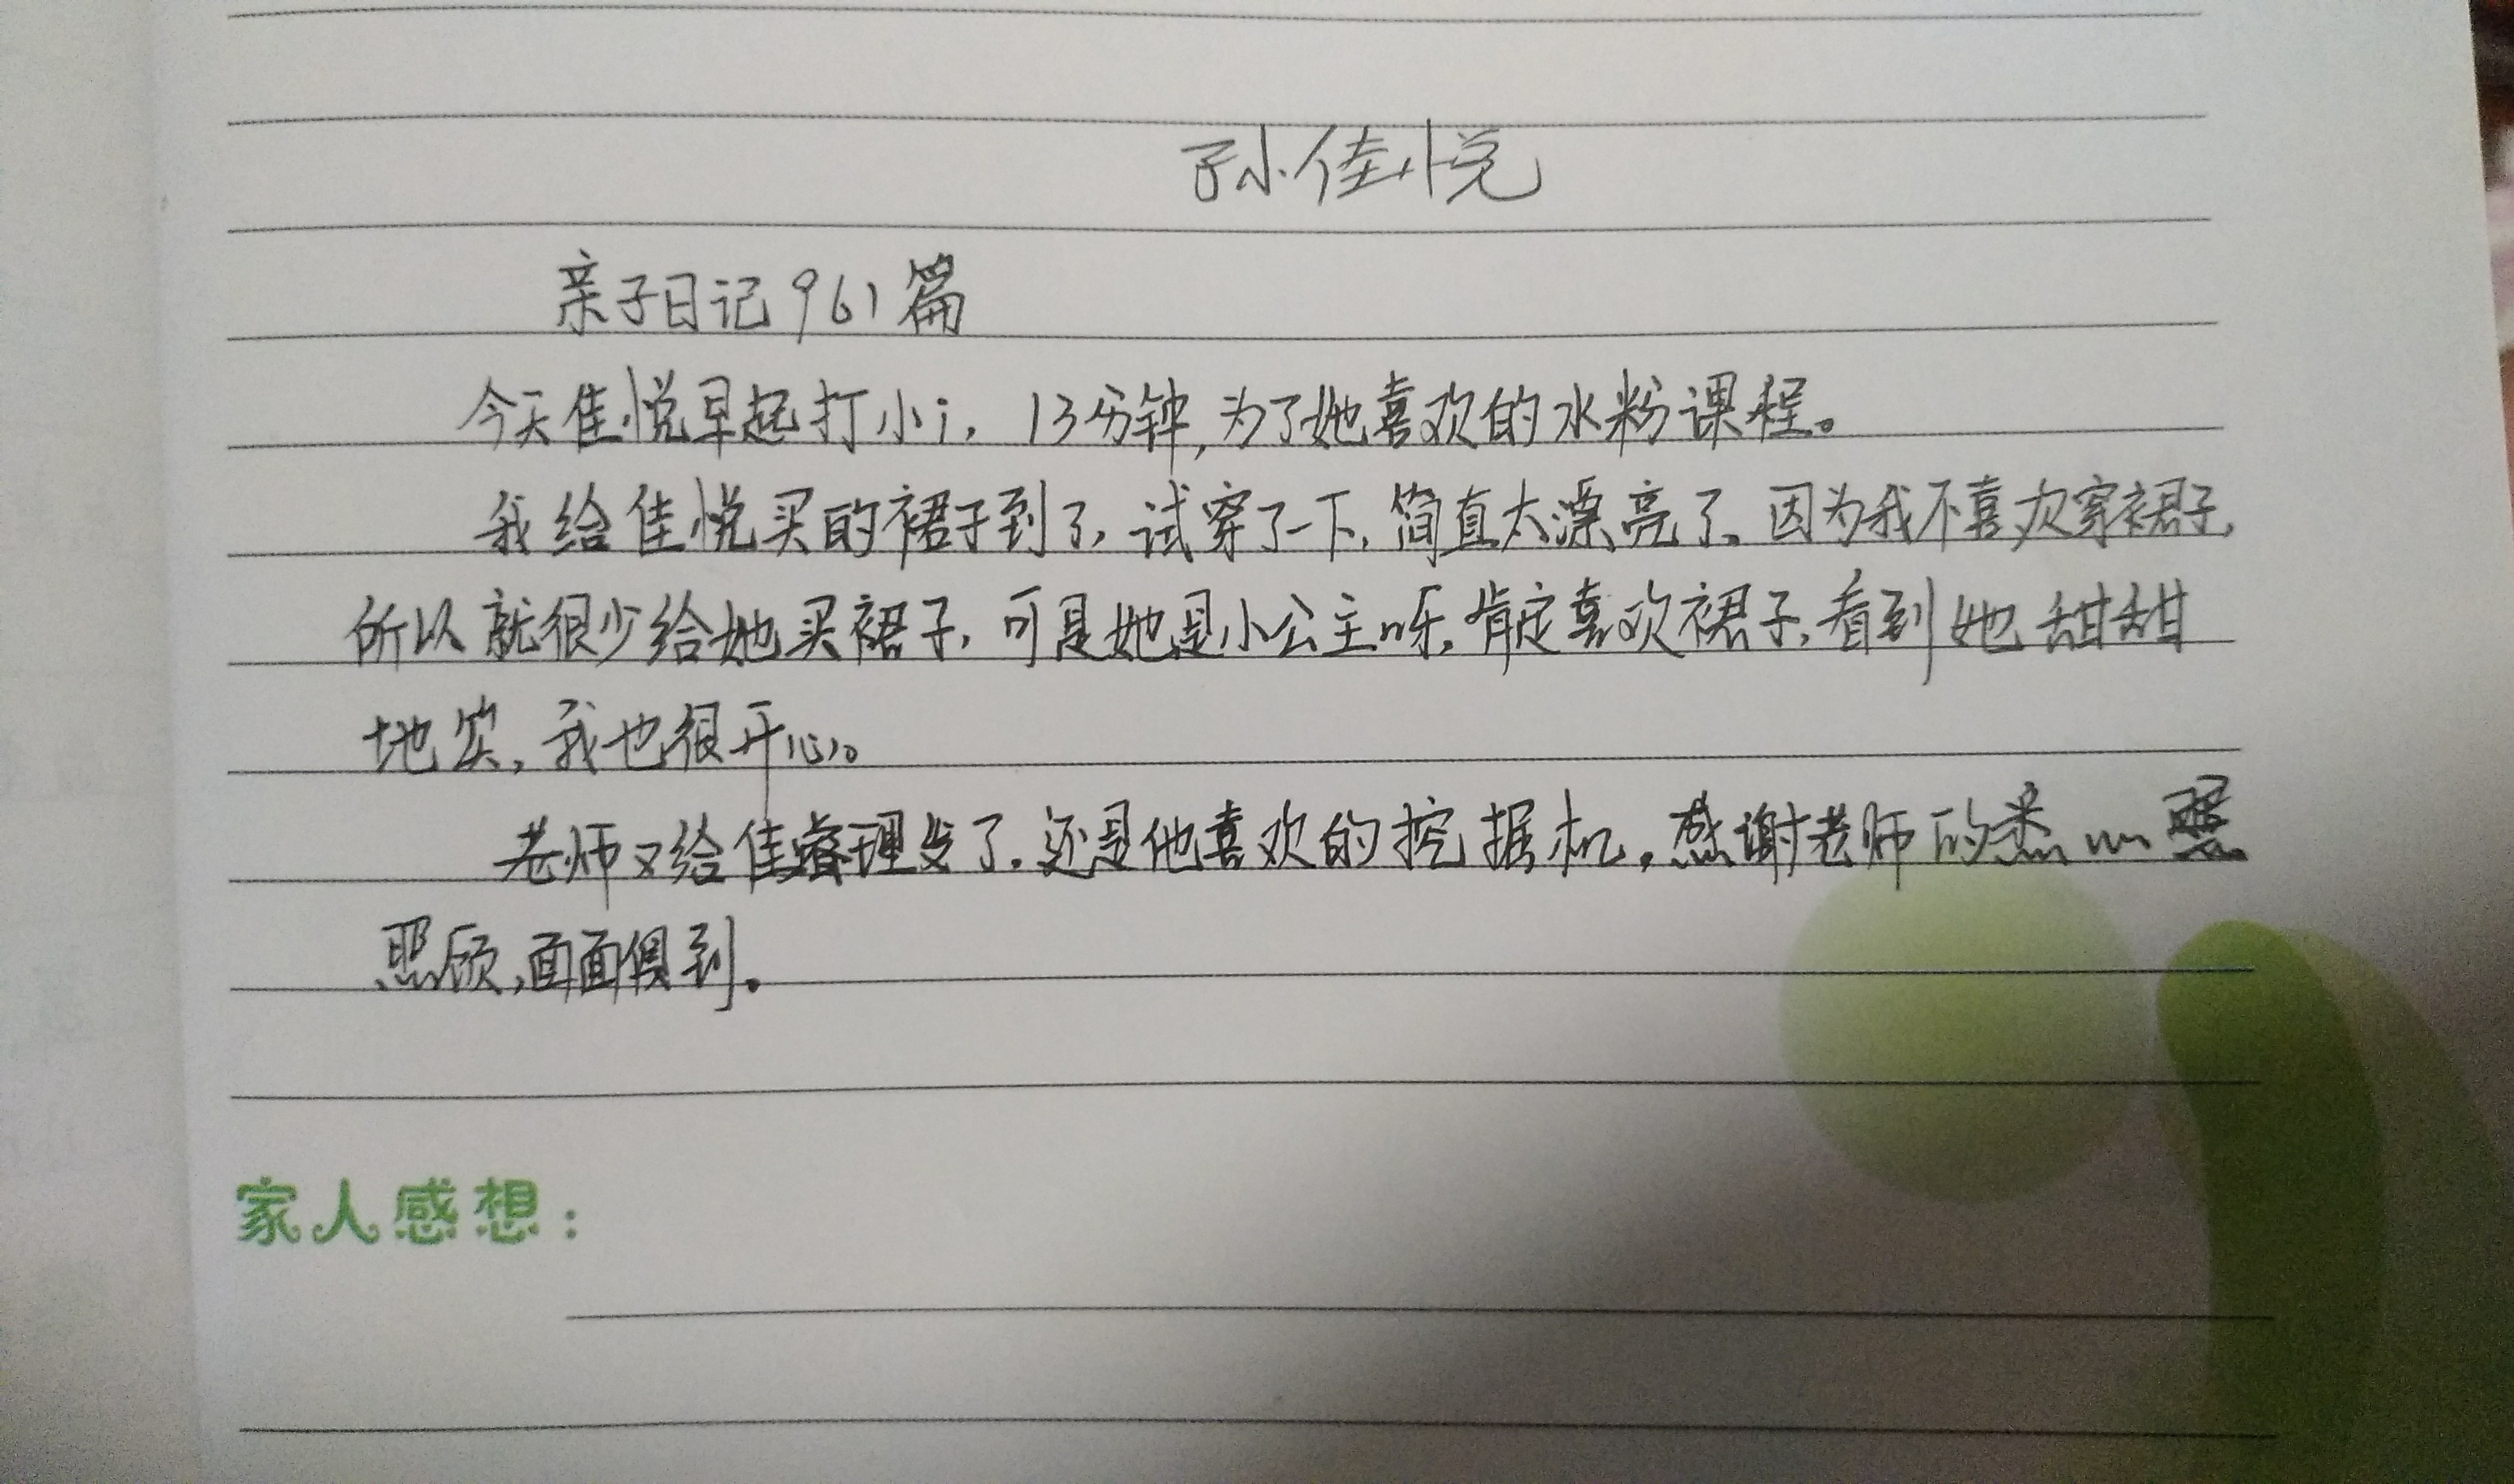 孙佳悦
亲子日记961篇
今天佳悦早起打小i，13分钟，为了她喜欢的水粉课程。
我给佳悦买的裙子到了，试穿了一下，简直太漂亮了。因为我不喜欢穿裙子，
所以就很少给她买裙子，可是她是小公主呀，肯定喜欢裙子，看到她甜甜
地笑，我也很开心。
老师又给佳睿理发了，还是他喜欢的挖掘机，感谢老师的悉心
照顾，面面俱到。
家人感想：